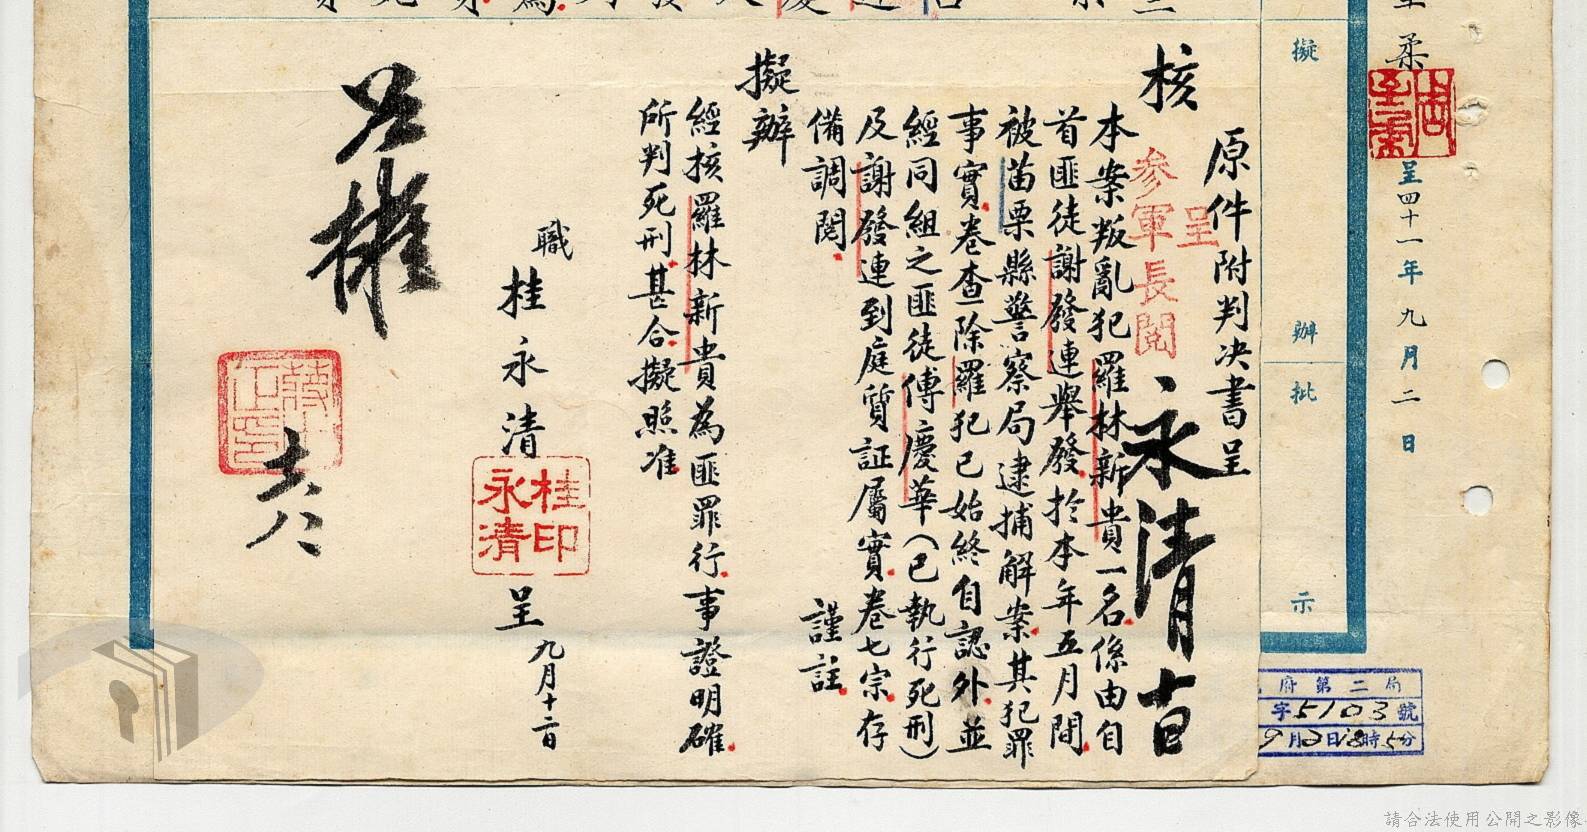 呈四十一年九月二日
擬
辦
批
示
原件附判决書呈
核
呈
参軍長閱
永清
本案叛亂犯羅林新貴一名係由自
首匪徒謝發連舉發於本年五月間
被苗栗縣警察局逮捕解案其犯罪
事實卷查除羅犯已始終自認外並
經同組之匪徒傅慶華(已執行死刑)
及謝發連到庭質証屬實卷七宗存
備調閱
謹註
擬辦
經核羅林新貴為匪罪行事證明確
所判死刑甚合擬照准
職
桂永清
桂永清印
呈
九月十二日
府第二局
字5103號
請合法使用公開之影像